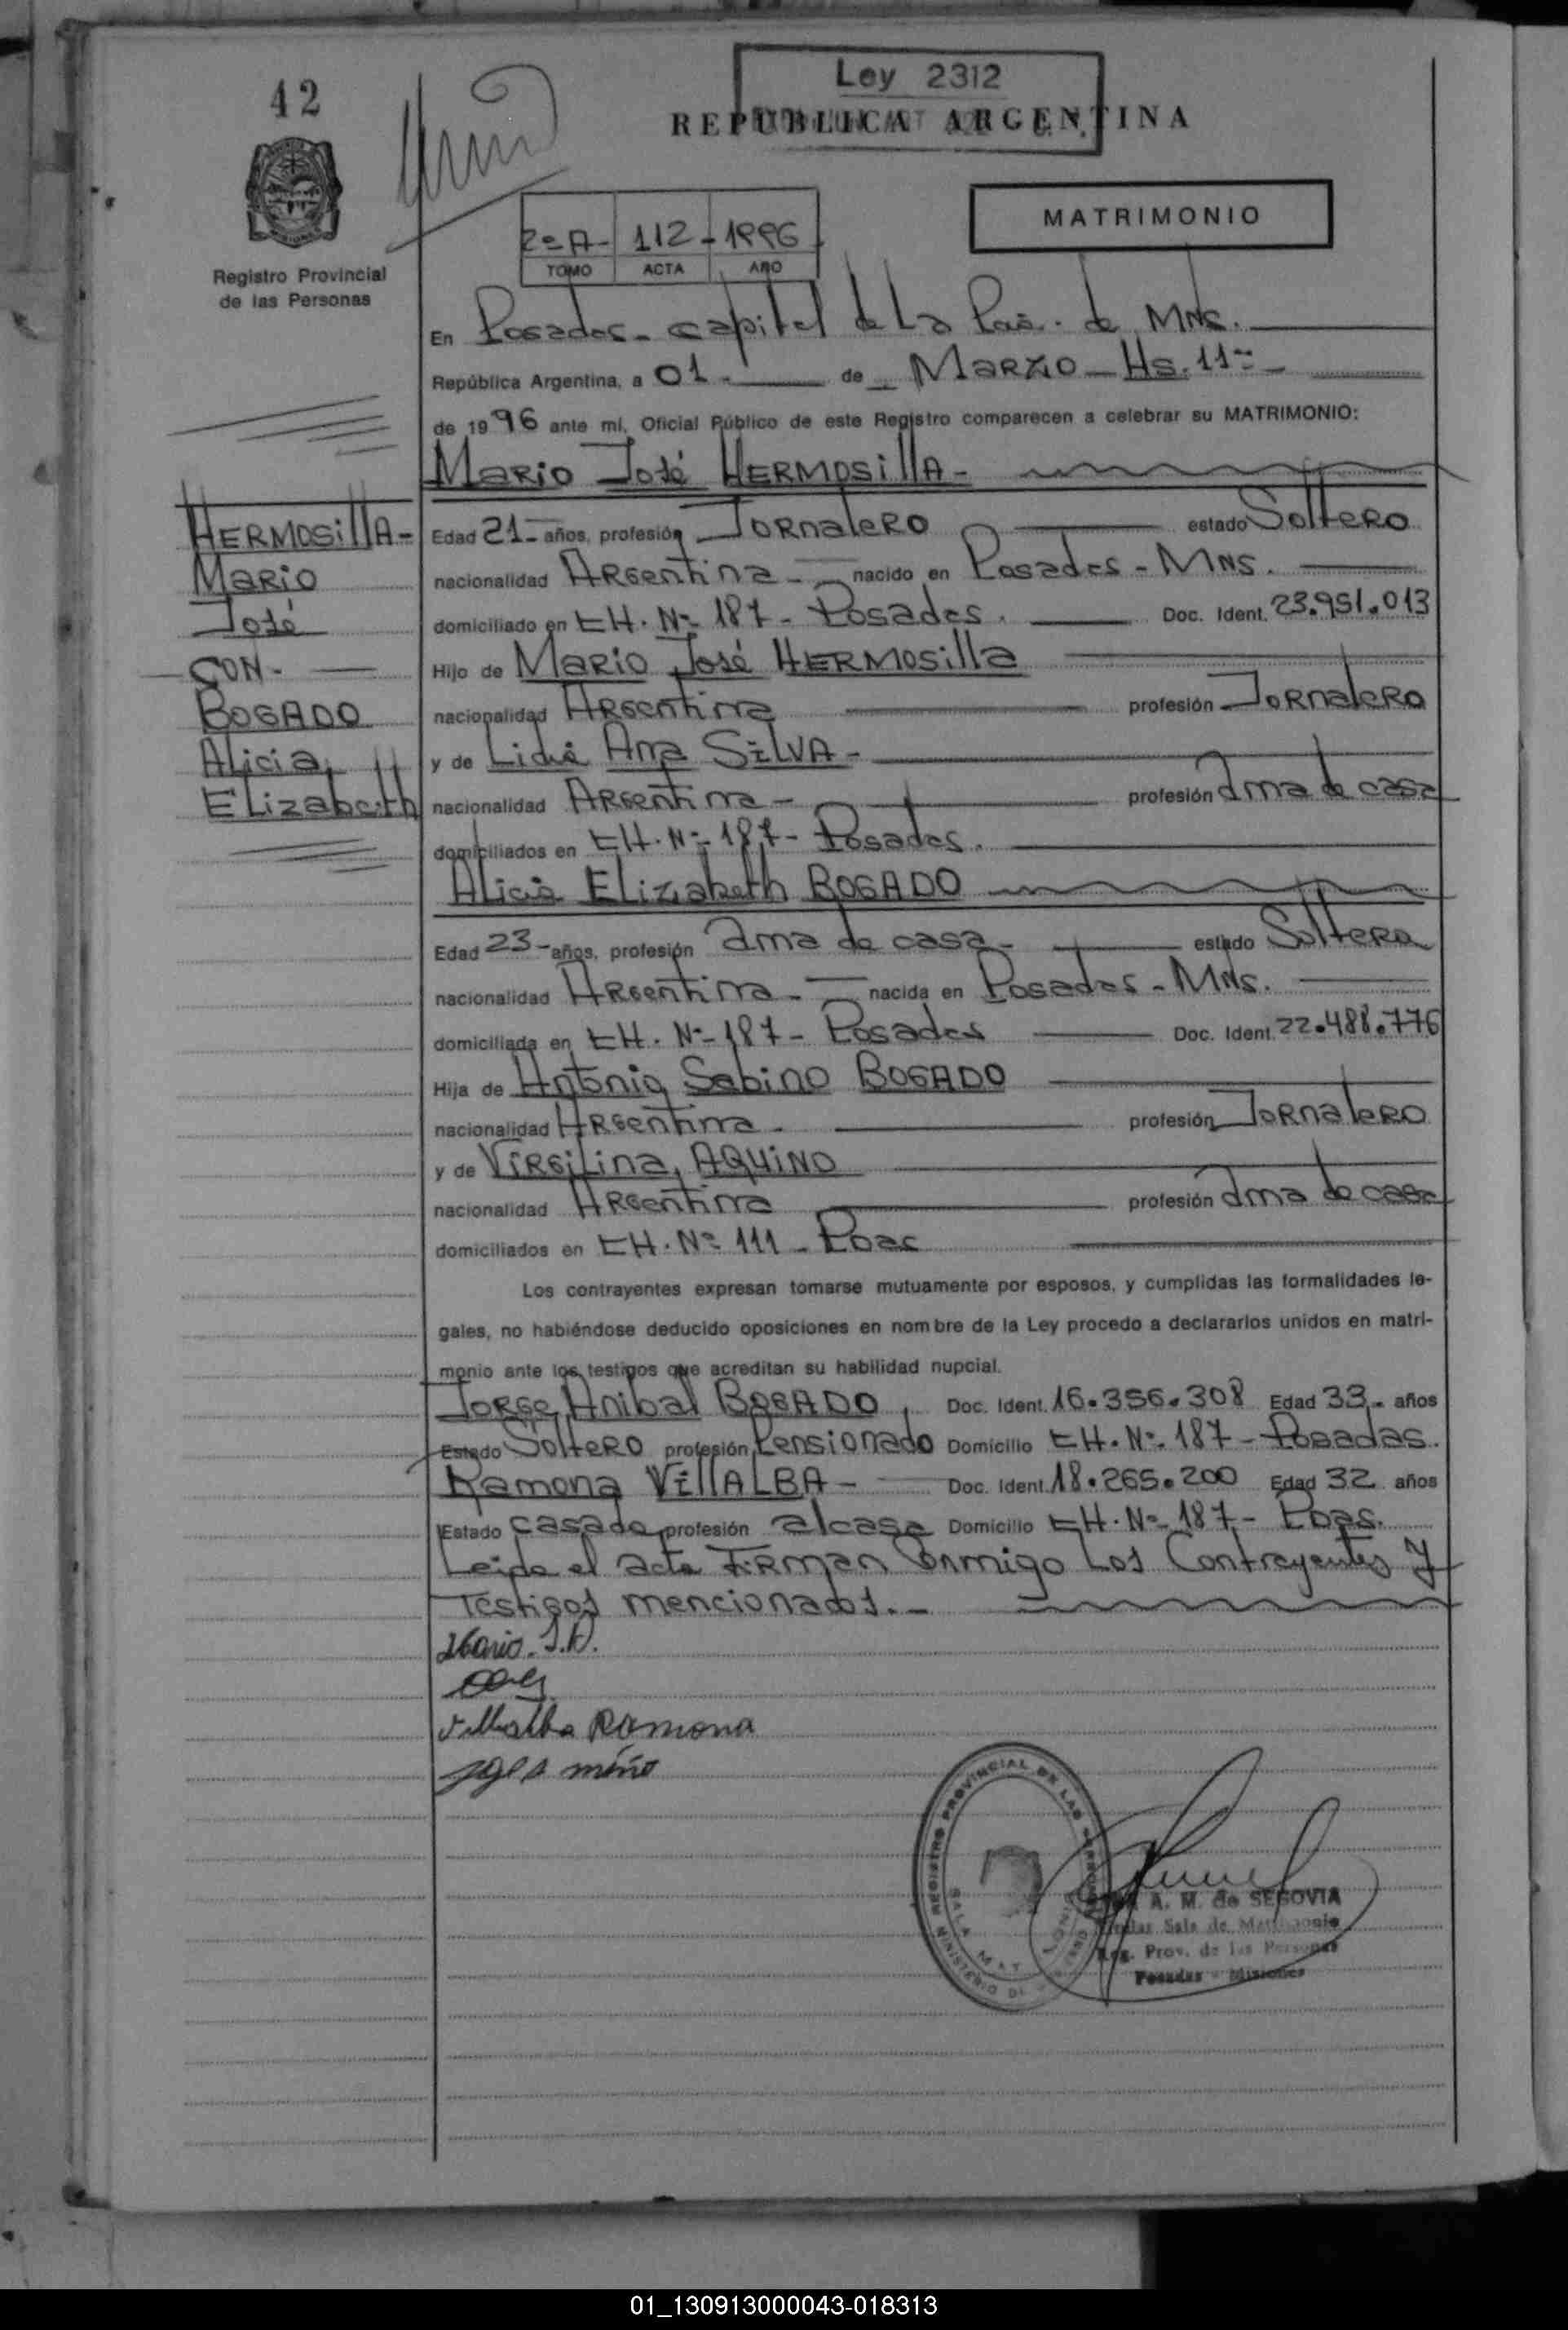 42
Ley 2312
REPUBLICA ARGENTINA
MATRIMONIO
2º A - 112 - 1996
TOMO ACTA AÑO
Registro Provincial
de las Personas
En Posadas - capital de La Pcia. de Mns.
República Argentina, a 01 - de Marzo - Hs. 11
de 1996 ante mí, Oficial Público de este Registro comparecen a celebrar su MATRIMONIO:
Mario José HERMOSillA -
HERMOSillA -
Mario
José
CON -
BOGADO
Alicia
Elizabeith
Edad 21 - años, profesión Jornalero estado Soltero
nacionalidad Argentina - nacido en Posadas - Mns.
domiciliado en CH. Nº 187 - Posadas. Doc. Ident. 23.951.013
Hijo de Mario José HERMOSilla
nacionalidad Argentina profesión Jornalero
y de Lidia Ana SILVA -
nacionalidad Argentina - profesión ama de casa
domiciliados en CH. Nº 187 - Posadas.
Alicia Elizabeth BOGADO
Edad 23 - años, profesión ama de casa - estado Soltera
nacionalidad Argentina - nacida en Posadas - Mns.
domiciliada en CH. Nº 187 - Posadas Doc. Ident. 22.488.776
Hija de Antonio Sabino BOGADO
nacionalidad Argentina - profesión Jornalero
y de Virgilina AQUINO
nacionalidad Argentina profesión ama de casa
domiciliados en CH. Nº 111 - Pdas
Los contrayentes expresan tomarse mutuamente por esposos, y cumplidas las formalidades le-
gales, no habiéndose deducido oposiciones en nombre de la Ley procedo a declararlos unidos en matri-
monio ante los testigos que acreditan su habilidad nupcial.
Jorge Anibal BOGADO Doc. Ident. 16.356.308 Edad 33 - años
Estado Soltero profesión Pensionado Domicilio CH. Nº 187 - Posadas.
Ramona VillALBA - Doc. Ident. 18.265.200 Edad 32 años
Estado casada profesión a/casa Domicilio CH. Nº 187 - Pdas.
Leida el acta Firman Conmigo Los Contrayentes y
Testigos mencionados. -
Mario
Villalba Ramona
REGISTRO PROVINCIAL DE LAS
SALA MAT
MINISTERIO DE
A. M. de SEGOVIA
Sala de Matrimonio
Reg. Prov. de las Personas
Posadas - Misiones
01_130913000043-018313